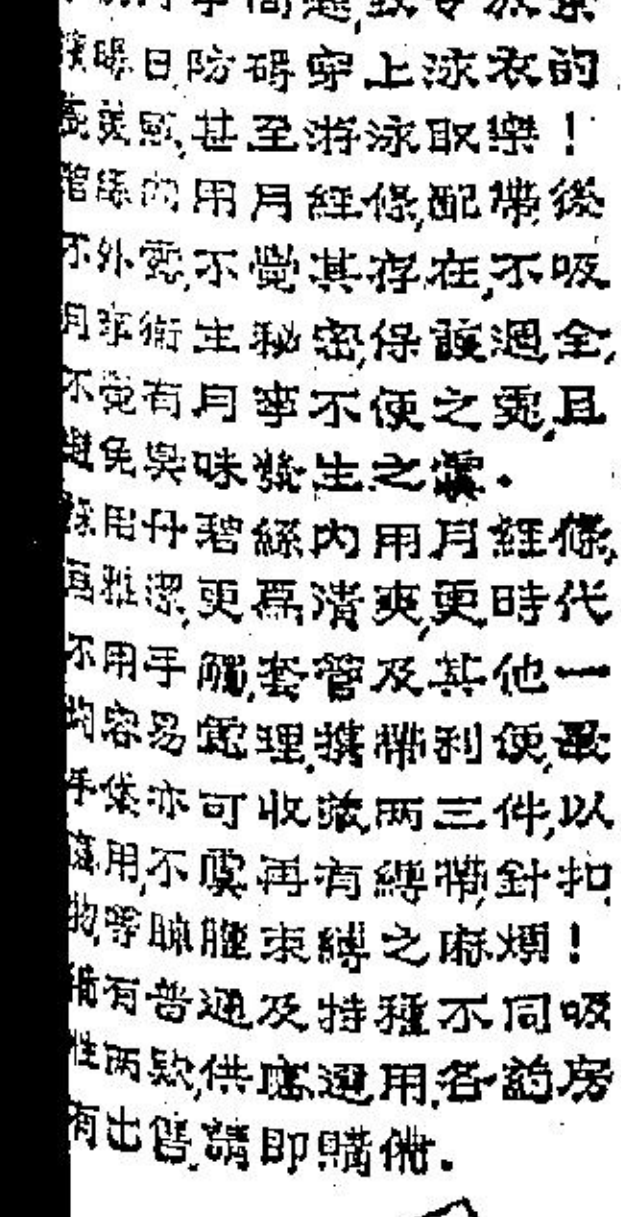 曝日,防碍穿上泳衣的
美感,甚至游泳取樂!
碧絲內用月經條,配帶後
不外露,不覺其存在,不吸
月事衞生秘密,保護週全,
不覺有月事不便之處,且
避免臭味發生之虞。
採用丹碧絲內用月經條,
爲雅潔,更爲清爽,更時代
不用手觸,套管及其他一
均容易處理,携帶利便,最
手袋亦可收藏兩三件,以
應用,不虞再有縛帶,針扣
物等臃腫束縛之麻煩!
備有普通及特種不同吸
性兩款,供應選用,各葯房
有出售,請即購備。